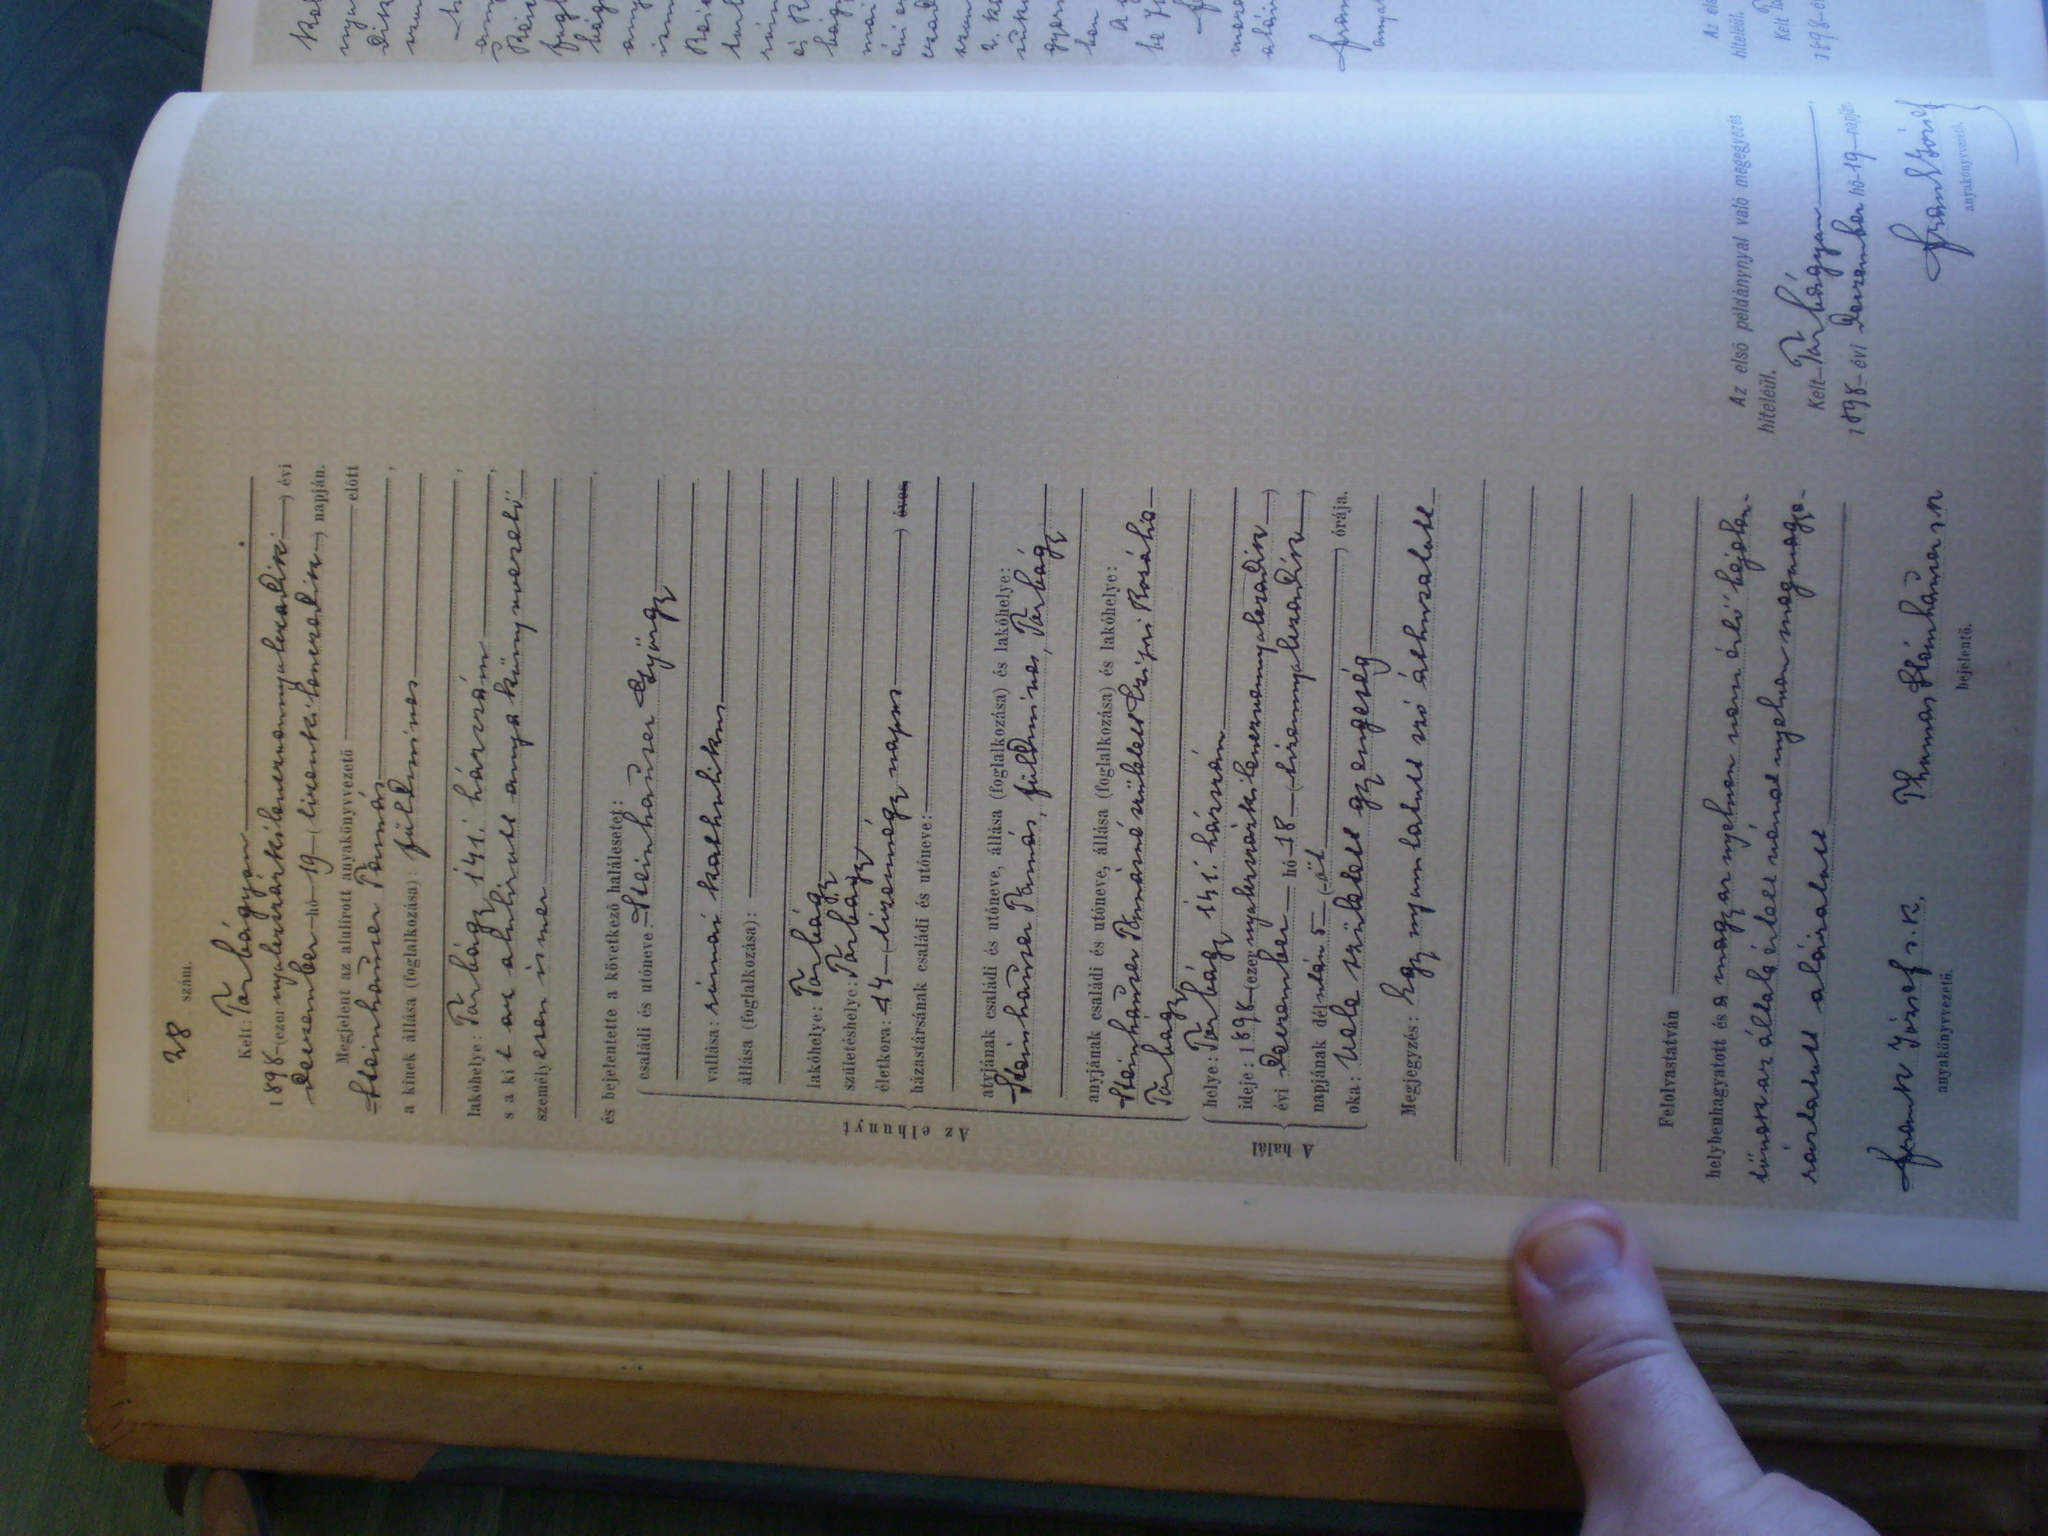 28 szám.
Kelt: Torbágyon
1898 (ezernyolczszázkilenczvennyolczadik) évi
deczember hó 19 (tizenkilenczedik) napján.
Megjelent az alulirott anyakönyvvezető előtt
Steinhauser Tamás
a kinek állása (foglalkozása): földmives
lakóhelye: Torbágy 141. házszám
s a ki t az alulirott anyakönyvvezető
személyesen ismer
és bejelentette a következő halálesetet:
Az elhunyt
családi és utóneve: Steinhauser György
vallása: római katholikus
állása (foglalkozása):
lakóhelye: Torbágy
születéshelye: Torbágy
életkora: 14 (tizennégy napos) éves,
házastársának családi és utóneve:
atyjának családi és utóneve, állása (foglalkozása) és lakóhelye:
Steinhauser Tamás, földmives, Torbágy
anyjának családi és utóneve, állása (foglalkozása) és lakóhelye:
Steinhauser Tamásné született Rozália
Torbágy
A halál
helye: Torbágy 141. házszám
ideje: 1898 (ezernyolczszázkilenczvennyolczadik)
évi deczember hó 18 (tizennyolczadik)
napjának délután 5 (öt) órája.
oka: Vele született gyengeség
Megjegyzés: Egy nyomtatott szó áthuzatott
Felolvastatván
helybenhagyatott és a magyar nyelven nem értő bejelen-
tőnek az általa értett német nyelven megmagya-
ráztatott aláiratott
Frank József s. k.
anyakönyvvezető.
Thomas Steinhauser s k
bejelentő.
Az első példánynyal való megegyezés
hiteléül.
Kelt Torbágyon
1898 évi deczember hó 19 napján.
Frank József
anyakönyvvezető.